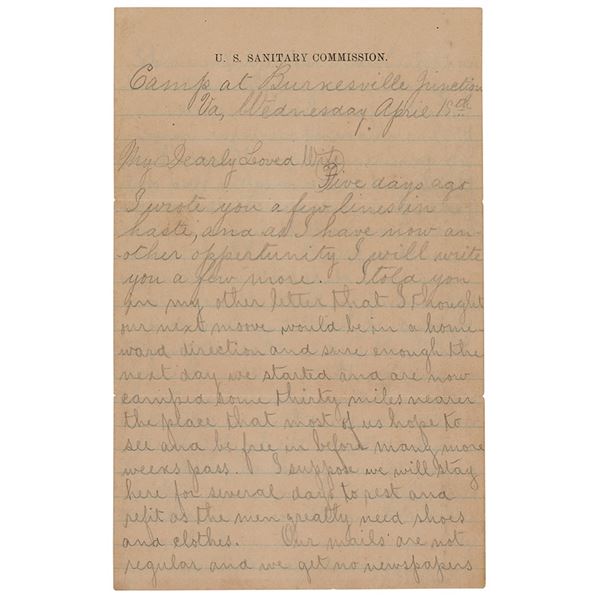 U. S. SANITARY COMMISSION.
Camp at Burkesville Junction
Va, Wednesday April 19th
My Dearly Loved Wife
Five days ago
I wrote you a few lines in
haste, and as I have now an-
other oppertunity I will write
you a few more. I told you
in my other letter that I thought
our next moove would be in a home-
ward direction and sure enough the
next day we started and are now
camped some thirty miles nearer
the place that most of us hope to
see and be free in before many more
weeks pass. I suppose we will stay
here for several days to rest and
refit as the men greatly need shoes
and clothes. Our mails are not
regular and we get no newspapers